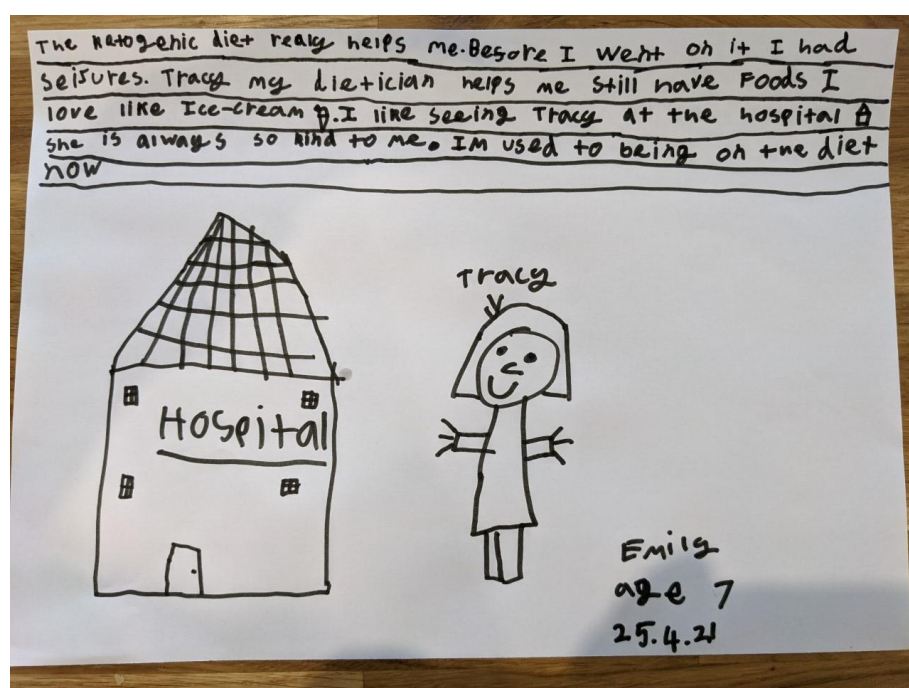 The Ketogenic diet realy helps me.Before I went on it I had
seisures. Tracy my dietician helps me still have Foods I
love like Ice-cream .I like seeing Tracy at the hospital
she is always so kind to me. IM used to being on the diet
now
Tracy
Hospital
Emily
age 7
25.4.21